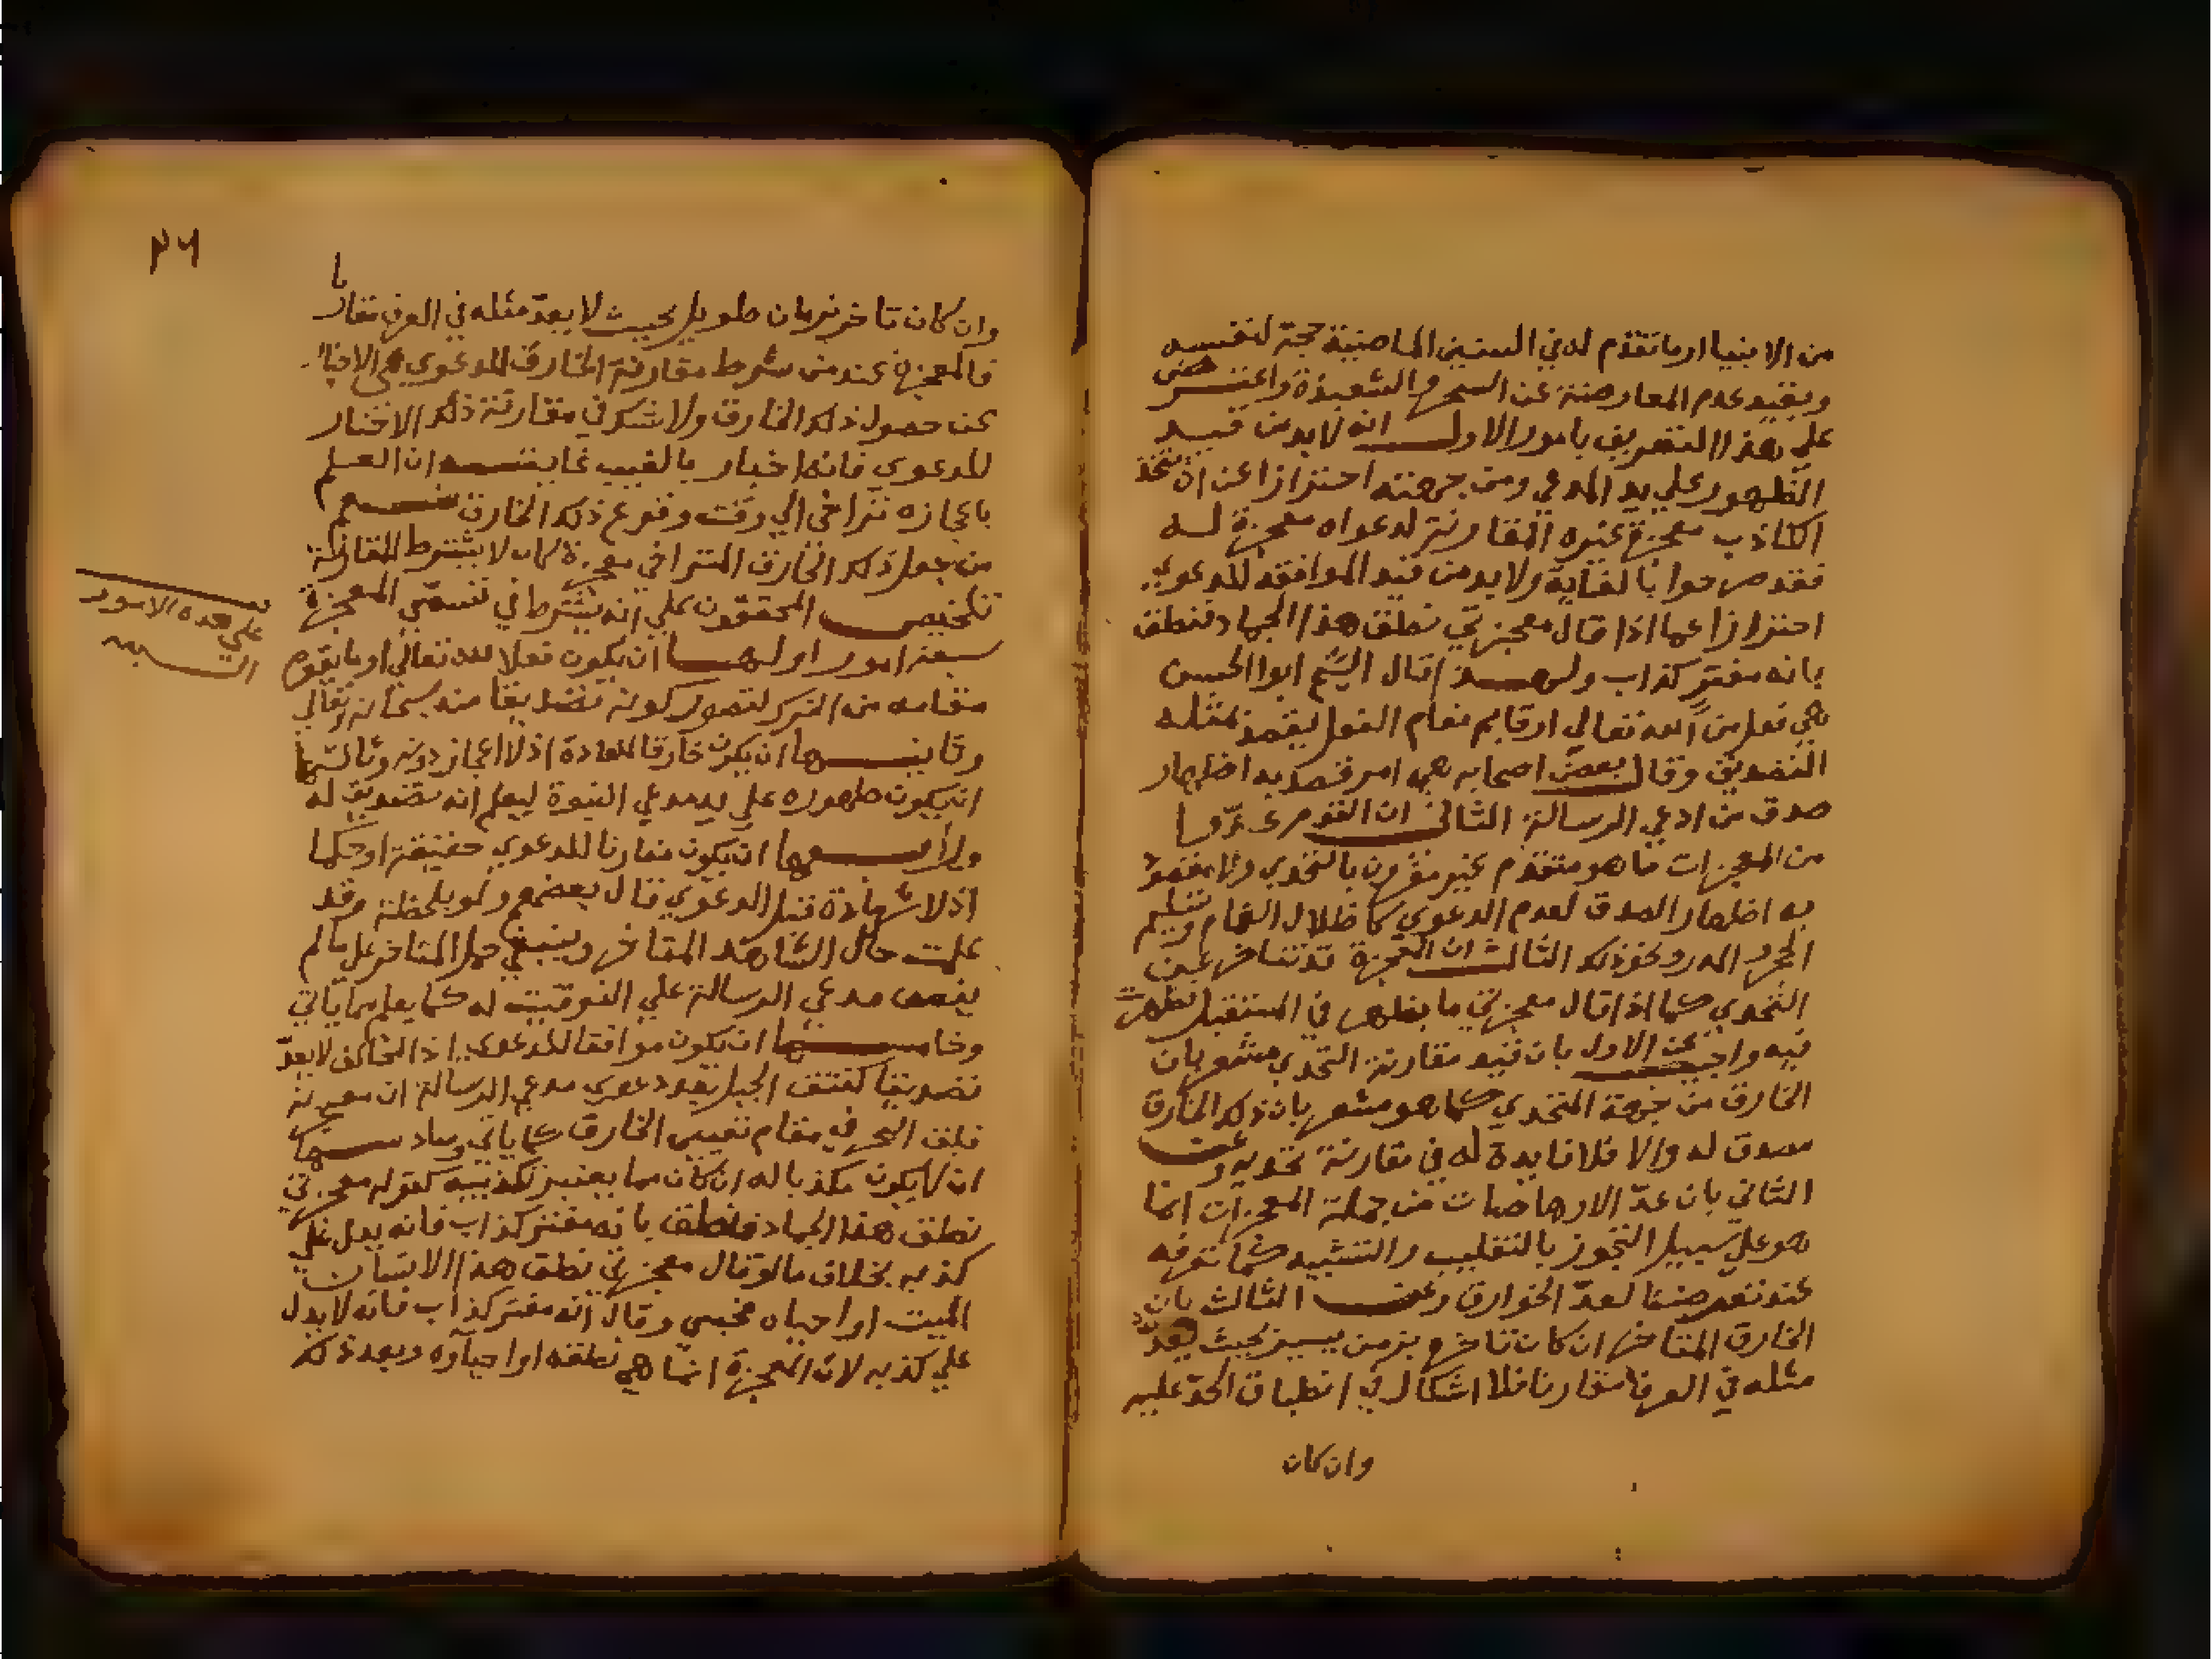 من الانبيا او ما تقدم له في السنين الماضية حجة لنفسه
وبقيد عدم المعارضة عن السحر والشعبذة واعترض
على هذا التعريف بامور الاول انه لا بد من قيد
الظهور على يد المدعي ومن جهته احترازا عن ان يتخذ
الكاذب معجزة غيره المقارنة لدعواه معجزة له
فقد صرحوا بالغاية ولا بد من قيد الموافقه للدعوي
احترازا عما اذا قال معجزتي نطق هذا الجماد فنطق
بانه مفتر كذاب ولهذا قال الشيخ ابوا الحسن
هي فعل من الله تعالى او قايم مقام الفعل يقصد بمثله
التصديق وقال بعض اصحابه هي امر قصد به اظهار
صدق من ادعي الرسالة الثاني ان القوم عدّوا
من المعجزات ما هو متقدم غير مقرون بالتحدي ولا مقصود
به اظهار الصدق لعدم الدعوي كاظلال الغمام وتسليم
الحجر والمدر ونحو ذلك الثالث ان المعجزة قد تتاخر عن
التحدي كما اذا قال معجزتي ما يظهر في المستقبل فظهرت
فيه واجيب عن الاول بان قيد مقارنة التحدي مشعر بان
الخارق من جهة المتحدي كما هو مشعر بان ذلك الخارق
مصدق له والا فلا فايدة له في مقارنة تحديه وعن
الثاني بان عدّ الارهاصات من جملة المعجزات انما
هو علي سبيل التجوز بالتغليب والتشبيه كما تعرفه
عند تعرضنا لعدّ الخوارق وعن الثالث بان
الخارق المتاخر ان كان تاخره بزمن يسير بحيث يعد
مثله في العرف مقارنا فلا اشكال في انطباق الحدّ عليه
وان كان
٢٦
وان كان تاخر بزمان طويل بحيث لا يعدّ مثله في العرف مقارنا
فالمعجزة عند من شرط مقارنة الخارق للدعوي هي الاخبار
عن حصول ذلك الخارق ولا شك في مقارنة ذلك الاخبار
للدعوي فانه اخبار بالغيب غايته ان العلم
باعجازه تراخى الي وقت وقوع ذلك الخارق نعم
من جعل ذلك الخارق المتراخي معجزة كان لا يشترط المقارنة
تلخيص المحققون علي انه يشترط في تسمي المعجزة
سبعة امور اولها ان يكون فعلا لله تعالي او ما يقوم
مقامه من الترك لتصور كونه تصديقا منه سبحانه وتعالي
وثانيها ان يكون خارقا للعادة اذ لا اعجاز دونه وثالثها
ان يكون ظهوره علي يد مدعي النبوة ليعلم انه تصديق له
ورابعها ان يكون مقارنا للدعوي حقيقة او حكما
اذ لا شهادة قبل الدعوي قال بعضهم ولو بلحظة وقد
علمت حال الشاهد المتاخر وينبغي حمل المتاخر علي ما لم
ينص مدعي الرسالة علي التوقيت له كما يعلم مما ياتي
وخامسها ان يكون موافقا للدعوي اذ المخالف لا يعدّ
تصديقا كنتق الجبل بعد دعوي مدعي الرسالة ان معجزته
فلق البحر في مقام تعيين الخارق كما ياتي وسادسها
ان لا يكون مكذبا له ان كان مما يعتبر تكذيبه كقوله معجزتي
نطق هذا الجماد فنطق بانه مفتر كذاب فانه يدل علي
كذبه بخلاف ما لو قال معجزتي نطق هذا الانسان
الميت او احياه فحيي وقال انه مفتر كذاب فانه لا يدل
علي كذبه لان المعجزة انما هي نطقه او احياوه وبعد ذلك
على هده الامور
السبعه